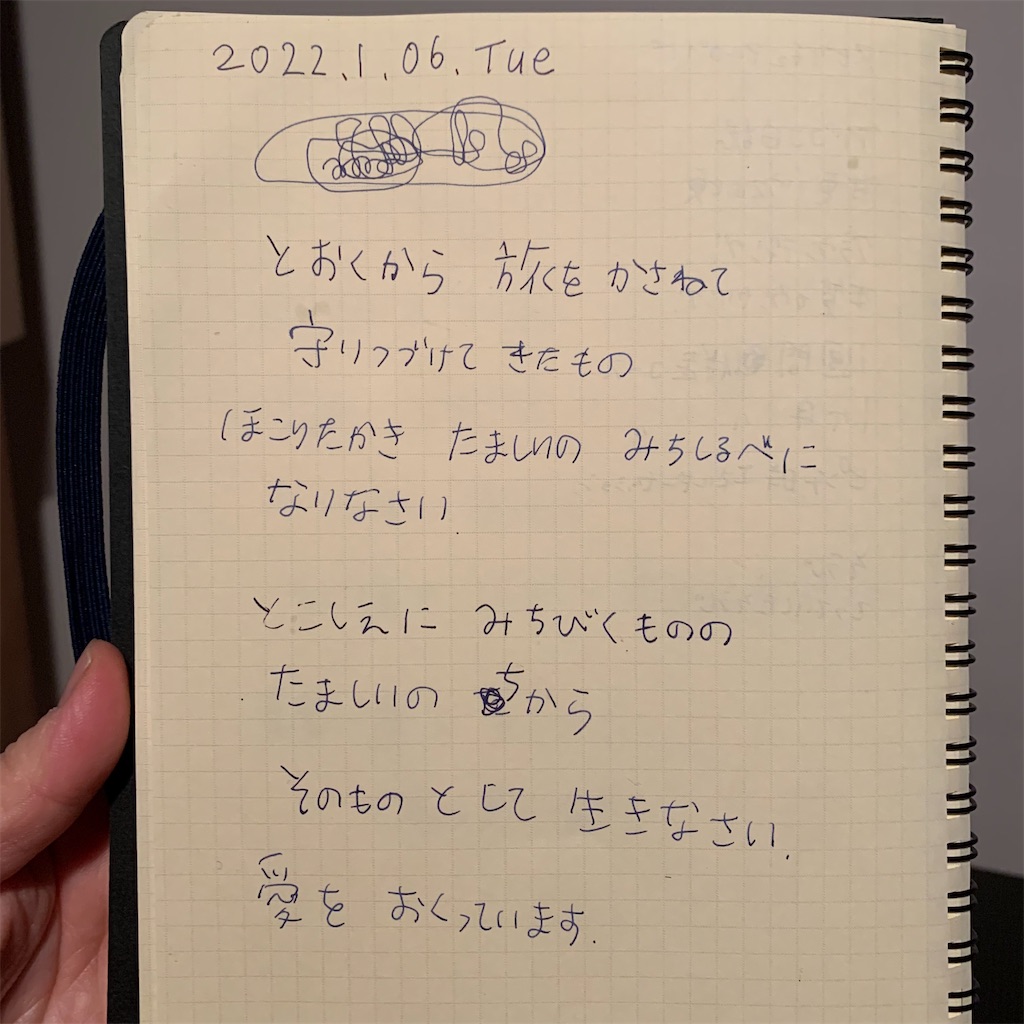 2022.1.06.Tue
とおくから 旅をかさねて
守りつづけてきたもの
ほこりたかき たましいの みちしるべに
なりなさい
とこしえに みちびくものの
たましいの ちから
そのものとして 生きなさい.
愛を おくっています.